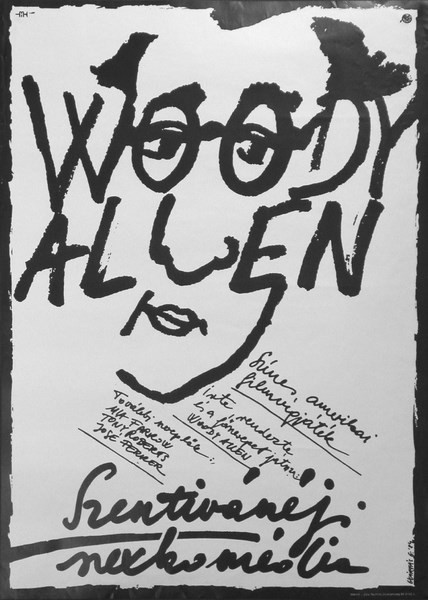 WOODY
ALLEN
Színes, amerikai
filmvígjáték
írta, rendezte
és a főszerepet játssza:
WOODY ALLEN
További szereplők:
MIA FARROW
TONY ROBERTS
JOSÉ FERRER
Szentivánéji
szexkomédia